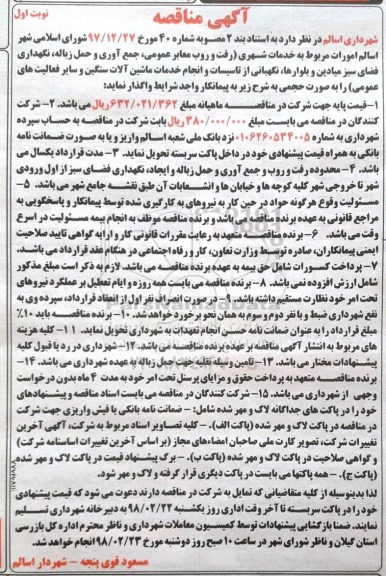 نوبت اول
آگهی مناقصه
شهرداری اسالم در نظر دارد به استناد بند ۲ مصوبه شماره ۴۰ مورخ ۹۷/۱۲/۲۷ شورای اسلامی شهر
اسالم امورات مربوط به خدمات شهری (رفت و روب معابر عمومی، جمع آوری و حمل زباله، نگهداری
فضای سبز میادین و بلوارها، نگهبانی از تاسیسات و انجام خدمات ماشین آلات سنگین و سایر فعالیت های
عمومی) را به صورت حجمی به شرح زیر به پیمانکار واجد شرایط واگذار نماید:
۱- قیمت پایه جهت شرکت در مناقصه ماهیانه مبلغ ۶۳۲/۰۲۱/۳۶۲ ریال می باشد. ۲- شرکت
کنندگان در مناقصه می بایست مبلغ ۳۸۰/۰۰۰/۰۰۰ ریال بابت شرکت در مناقصه به حساب سپرده
شهرداری به شماره ۰۱۰۶۲۶۰۵۳۴۰۰۵ نزد بانک ملی شعبه اسالم واریز و یا به صورت ضمانت نامه
بانکی به همراه قیمت پیشنهادی خود در داخل پاکت سربسته تحویل نمایند. ۳- مدت قرارداد یکسال می
باشد. ۴- محدوده رفت و روب و جمع آوری و حمل زباله و ایجاد، نگهداری فضای سبز از اول ورودی
شهر تا خروجی شهر کلیه کوچه ها و خیابان ها و انشعابات آن طبق نقشه جامع شهر می باشد. ۵-
مسئولیت وقوع هرگونه حوادث در حین کار به نیروهای به کارگیری شده توسط پیمانکار و پاسخگویی به
مراجع قانونی به عهده برنده مناقصه می باشد و برنده مناقصه موظف به انجام بیمه مسئولیت در اسرع
وقت می باشد. ۶- برنده مناقصه متعهد به رعایت مقررات قانونی کار و ارایه گواهی تایید صلاحیت
ایمنی پیمانکاران، صادره توسط وزارت تعاون، کار و رفاه اجتماعی در هنگام عقد قرارداد می باشد.
۷- پرداخت کسورات شامل حق بیمه به عهده برنده مناقصه می باشد. لازم به ذکر است مبلغ مذکور
شامل ارزش افزوده نمی باشد. ۸- برنده مناقصه می بایست همه روزه و ایام تعطیل بر عملکرد نیروهای
تحت امر خود نظارت مستقیم داشته باشد. ۹- در صورت انصراف نفر اول از انعقاد قرارداد، سپرده وی به
نفع شهرداری ضبط و با نفر دوم و سوم به همان نحو برخورد خواهد شد. ۱۰- برنده مناقصه باید ۱۰٪
مبلغ قرارداد را به عنوان ضمانت نامه حسن انجام تعهدات به شهرداری تحویل نماید. ۱۱- کلیه هزینه
های مربوط به انتشار آگهی مناقصه بر عهده برنده مناقصه می باشد. ۱۲- شهرداری در رد یا قبول کلیه
پیشنهادات مختار می باشد. ۱۳- تامین وسیله نقلیه جهت حمل زباله به عهده شهرداری می باشد. ۱۴-
برنده مناقصه متعهد به پرداخت حقوق و مزایای پرسنل تحت امر خود به مدت ۴ ماه بدون درخواست
وجهی از شهرداری می باشد. ۱۵- شرکت کنندگان در مناقصه می بایست اسناد مناقصه و پیشنهادهای
خود را در پاکت های جداگانه لاک و مهر شده شامل: - ضمانت نامه بانکی یا فیش واریزی جهت شرکت
در مناقصه در پاکت لاک و مهر شده (پاکت الف). - کلیه تصاویر اسناد مربوط به شرکت، آگهی آخرین
تغییرات شرکت، تصویر کارت ملی صاحبان امضاءهای مجاز (بر اساس آخرین تغییرات اساسنامه شرکت)
و گواهی صلاحیت در پاکت لاک و مهر شده (پاکت ب). - برگ پیشنهاد قیمت در پاکت لاک و مهر شده
(پاکت ج). - همه پاکتها می بایست در پاکت دیگری قرار گرفته و لاک و مهر شود.
لذا بدینوسیله از کلیه متقاضیانی که تمایل به شرکت در مناقصه دارند دعوت می شود که قیمت پیشنهادی
خود را در پاکت سربسته تا آخر وقت اداری روز یکشنبه ۹۸/۰۲/۲۲ به دبیرخانه شهرداری تسلیم
نمایند. ضمنا بازگشایی پیشنهادات توسط کمیسیون معاملات شهرداری و ناظر محترم اداره کل بازرسی
استان گیلان و ناظر شورای شهر در ساعت ۱۰ صبح روز دوشنبه مورخ ۹۸/۰۲/۲۳ انجام خواهد شد.
مسعود قوی پنجه - شهردار اسالم